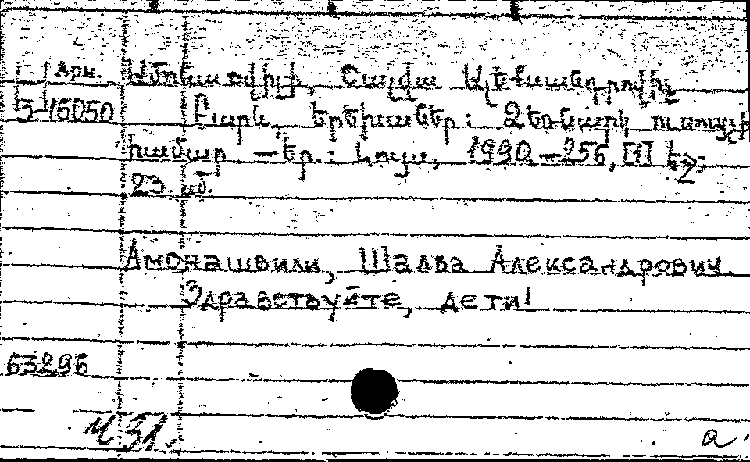 Арм.
Ամոնաշվիլի, Շալվա Ալեքսանդրովիչ
5-15050 Բարև, երեխաներ: Ձեռնարկ ուսուցչի
համար — Եր.: Լույս, 1990 — 256, [1] էջ;
23 սմ.
Амонашвили, Шалва Александрович
Здравствуйте, дети!
63296
а.